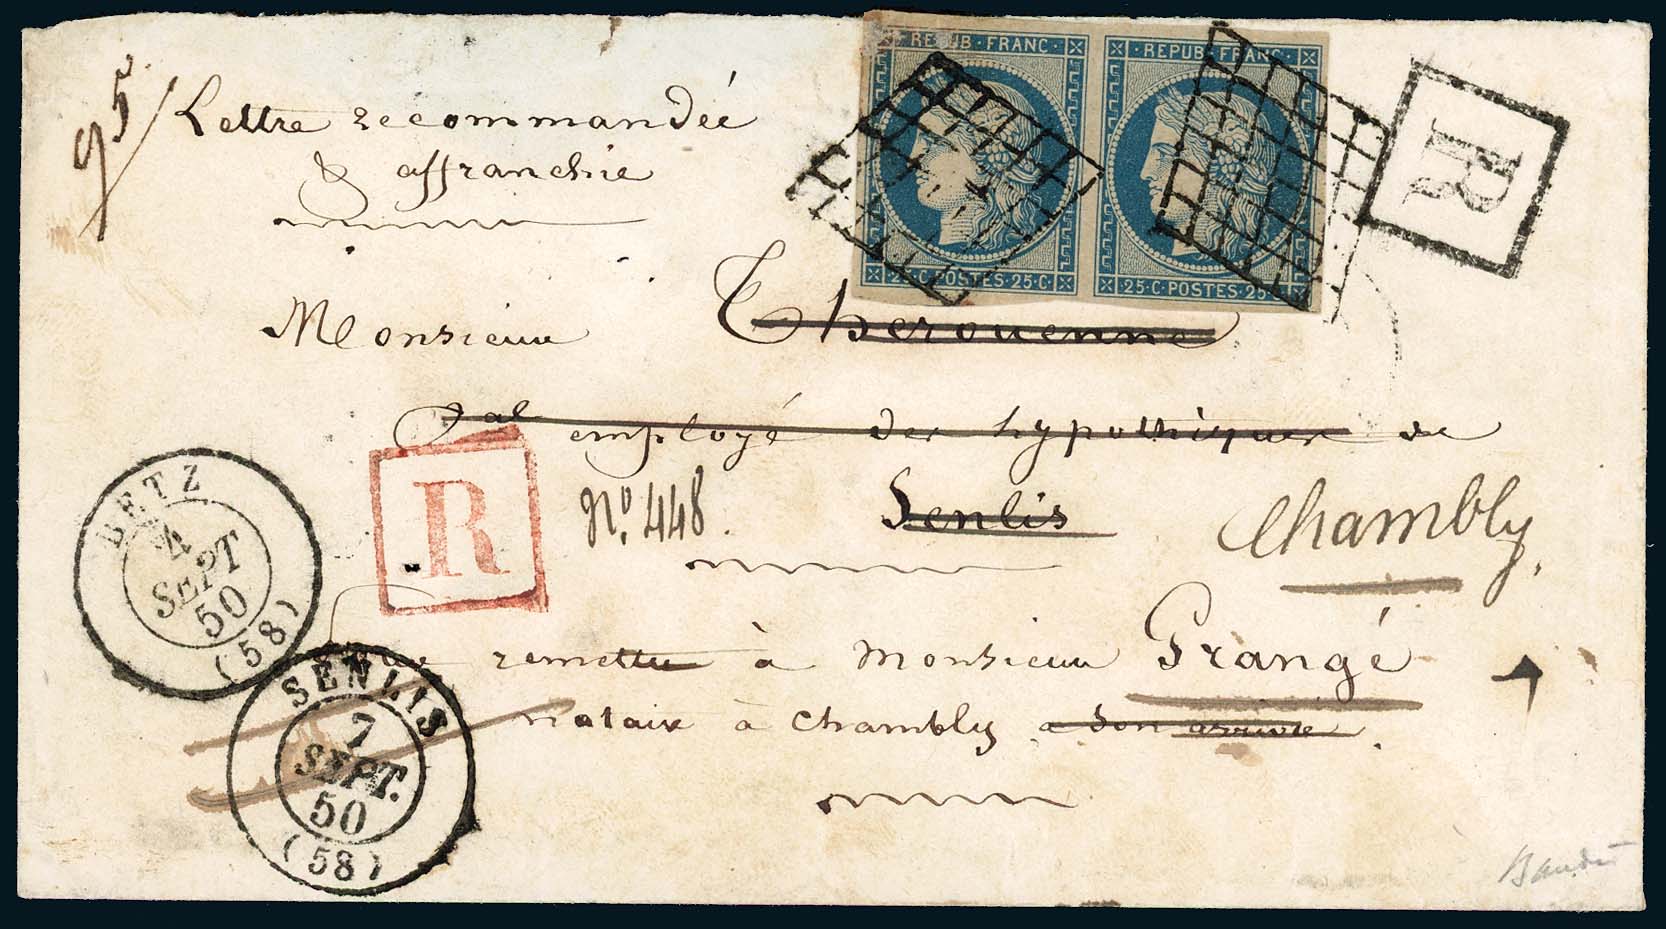 REPUB·FRANC·
·REPUB·FRANC·
25·C·POSTES·25·C
25·C·POSTES·25·C
R
95
Lettre recommandée
& affranchie
Monsieur Therouenne
employé des hypothèques de
Senlis
R
N.º 448.
Chambly
BETZ
4
SEPT
50
(58)
remettre à Monsieur Prangé
notaire à Chambly a son arrivée.
SENLIS
7
SEPT.
50
(58)